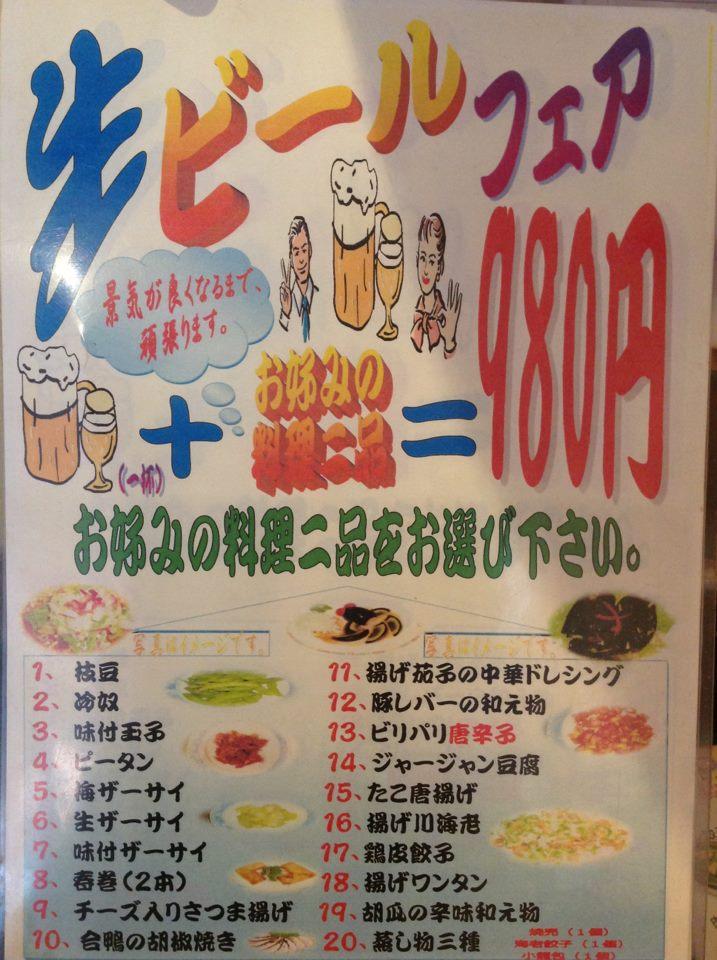 生ビールフェア
景気が良くなるまで、
頑張ります。
980円
(一杯)
+
お好みの
料理二品
=
お好みの料理二品をお選び下さい。
写真はイメージです。
写真はイメージです。
1、枝豆
2、冷奴
3、味付玉子
4、ピータン
5、海ザーサイ
6、生ザーサイ
7、味付ザーサイ
8、春巻(2本)
9、チーズ入りさつま揚げ
10、合鴨の胡椒焼き
11、揚げ茄子の中華ドレシング
12、豚レバーの和え物
13、ビリパリ唐辛子
14、ジャージャン豆腐
15、たこ唐揚げ
16、揚げ川海老
17、鶏皮餃子
18、揚げワンタン
19、胡瓜の辛味和え物
20、蒸し物三種
焼売(1個)
海老餃子(1個)
小籠包(1個)